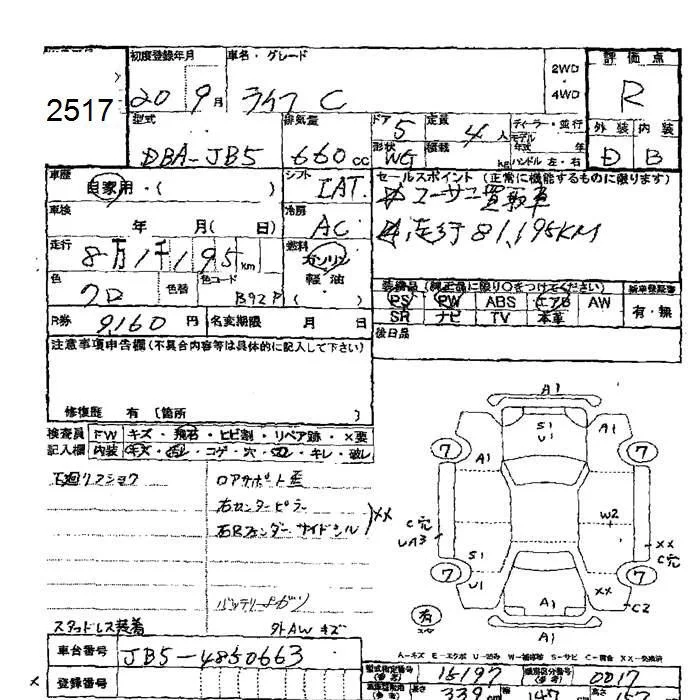 2517
初度登録年月 車名・グレード 2WD 4WD 評価点
20 9月 ライフ C R
型式 排気量 ドア 定員 ディーラー・並行
DBA-JB5 660cc 5 4人 モデル 年式 年
形状 WG 積載 kg ハンドル 左・右
外装 内装
D B
車歴 自家用・( ) シフト IAT
セールスポイント(正常に機能するものに限ります)
ユーザー買取車
走行81,195KM
車検 年 月( 日) 冷房 AC
走行 8万1千195km 燃料 ガソリン 軽油 ( )
色 クロ 色替 色コード B92P
装備品(純正品に限り○をつけてください) 新車保証書
PS PW ABS エアB AW 有・無
SR ナビ TV 本革
R券 9,160円 名変期限 月 日
後日品
注意事項申告欄(不具合内容等は具体的に記入して下さい)
修復歴 有 [箇所 ]
検査員記入欄
FW キズ・飛石・ヒビ割・リペア跡・×要
内装 キズ・汚レ・コゲ・穴・凹・キレ・破レ
下廻リサビショウ
コアサポート歪
右センターピラー
右Rフェンダー サイドシル XX
バッテリー上ガリ
スタッドレス装着 外AWキズ
A1
S1 U1
A1 A1
7 7
W2
C穴 UA3
XX C穴
S1
7 7
U1 XX
C2
A1
有
A1
A-キズ E-エクボ U-凹み W-補修跡 S-サビ C-腐食 XX-交換済
車台番号 JB5-4850663
登録番号
型式指定番号(参考) 15197 類別区分番号(参考) 0017
長さ 339cm 147cm 高さ 157cm